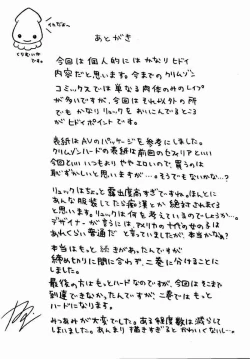 イカだよ〜
くりむぞんか
です。
あとがき
今回は個人的にはかなりヒドイ
内容だと思います。今までのクリムゾン
コミックスでは単なる肉体のみのレイプ
が多いですが、今回はそれ以外の所
でもかなりリュックをおいこんでるところ
がヒドイポイントです。
表紙はAVのパッケージを参考にしました。
クリムゾンハードの表紙は前回のセフィリアといい
今回といいいつもよりややエロいので、買うのは
恥ずかしいと思いますが…。そうでもないかな…?
リュックはちょっと露出度高すぎですね。ほんとに
あんな服装してたら痴漢とか絶対されまくる
と思います。リュックは何を考えているのでしょうか…。
デザイナーが言うには、アメリカの十代の女子は
あれくらい普通だと言っていましたが、本当かなぁ?
本当はもっと続きがあったんですが
締めきりに間に合わず、二巻に分けることに
しました。
最後の方はもっとハードなのですが、今回はそこまで
到達できなかったんですが、二巻ではもっと
ハードになります。
みつあみが大変でした。ある程度数は減らして
しまいました。あんまり描きすぎるとかわいくないので…